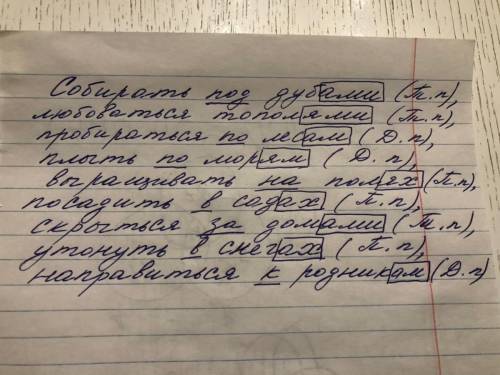 Собирать под дубами (Т.п),
любоваться тополями (Т.п),
пробираться по лесам (Д.п),
плыть по морям (Д.п),
выращивать на полях (П.п),
посадить в садах (П.п),
скрыться за домами (Т.п),
утонуть в снегах (П.п),
направиться к родникам (Д.п)